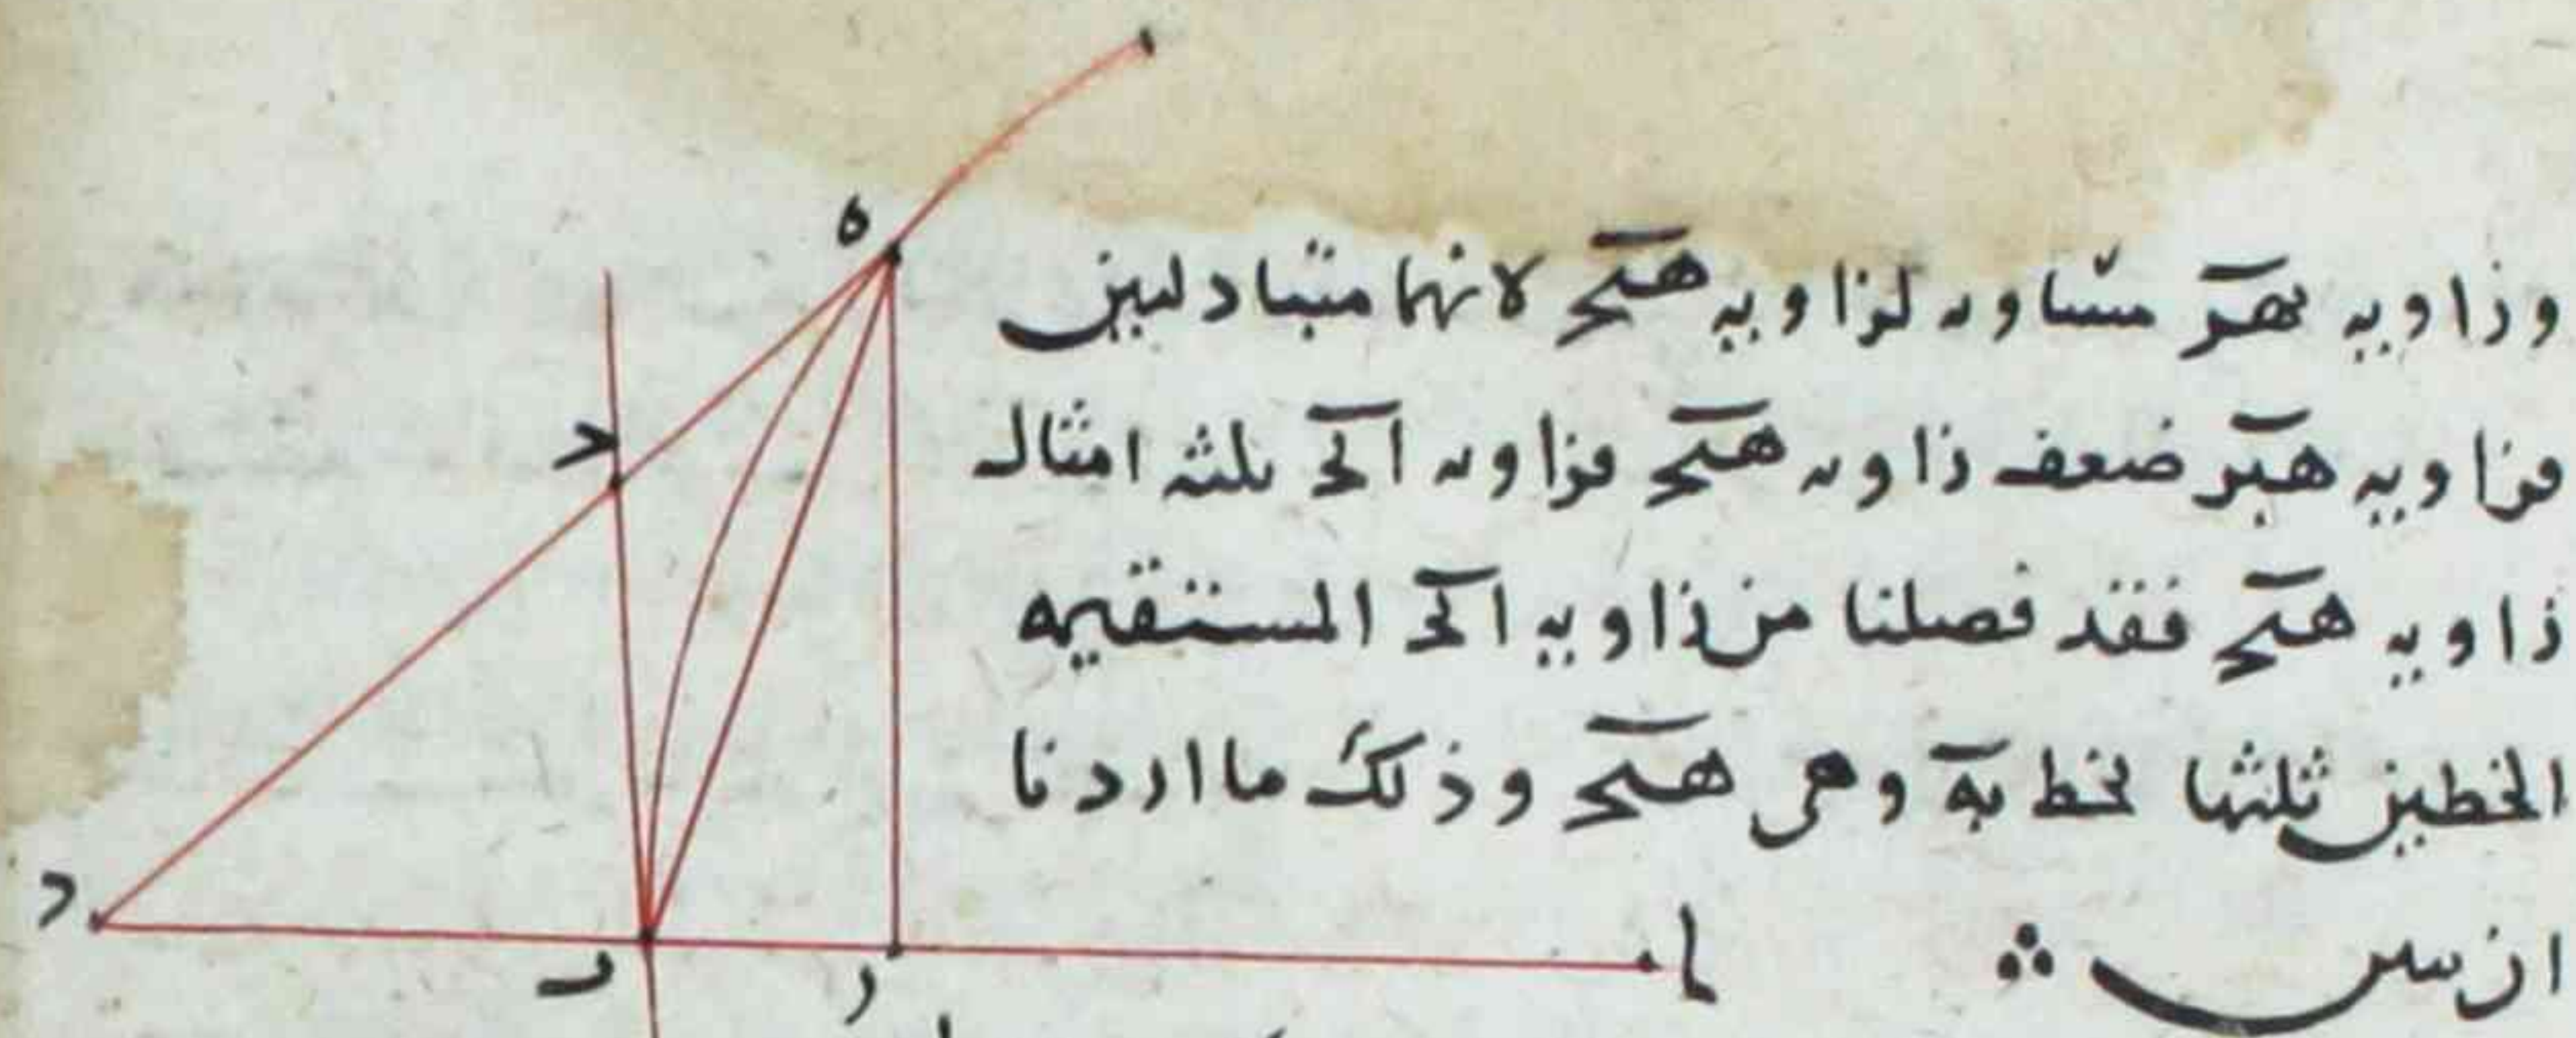 وزاويه بهز مساويه لزاويه هبح لانهما متبادلين
فزاويه هبز ضعف زاويه هبح فزاويه اكح ثلثه امثال
زاويه هبح فقد فصلنا من زاويه اكح المستقيمه
الخطين ثلثها بخط به وهى هبح وذلك ما اردنا
ان نبين
ه
ح
د
ب
ز
ا